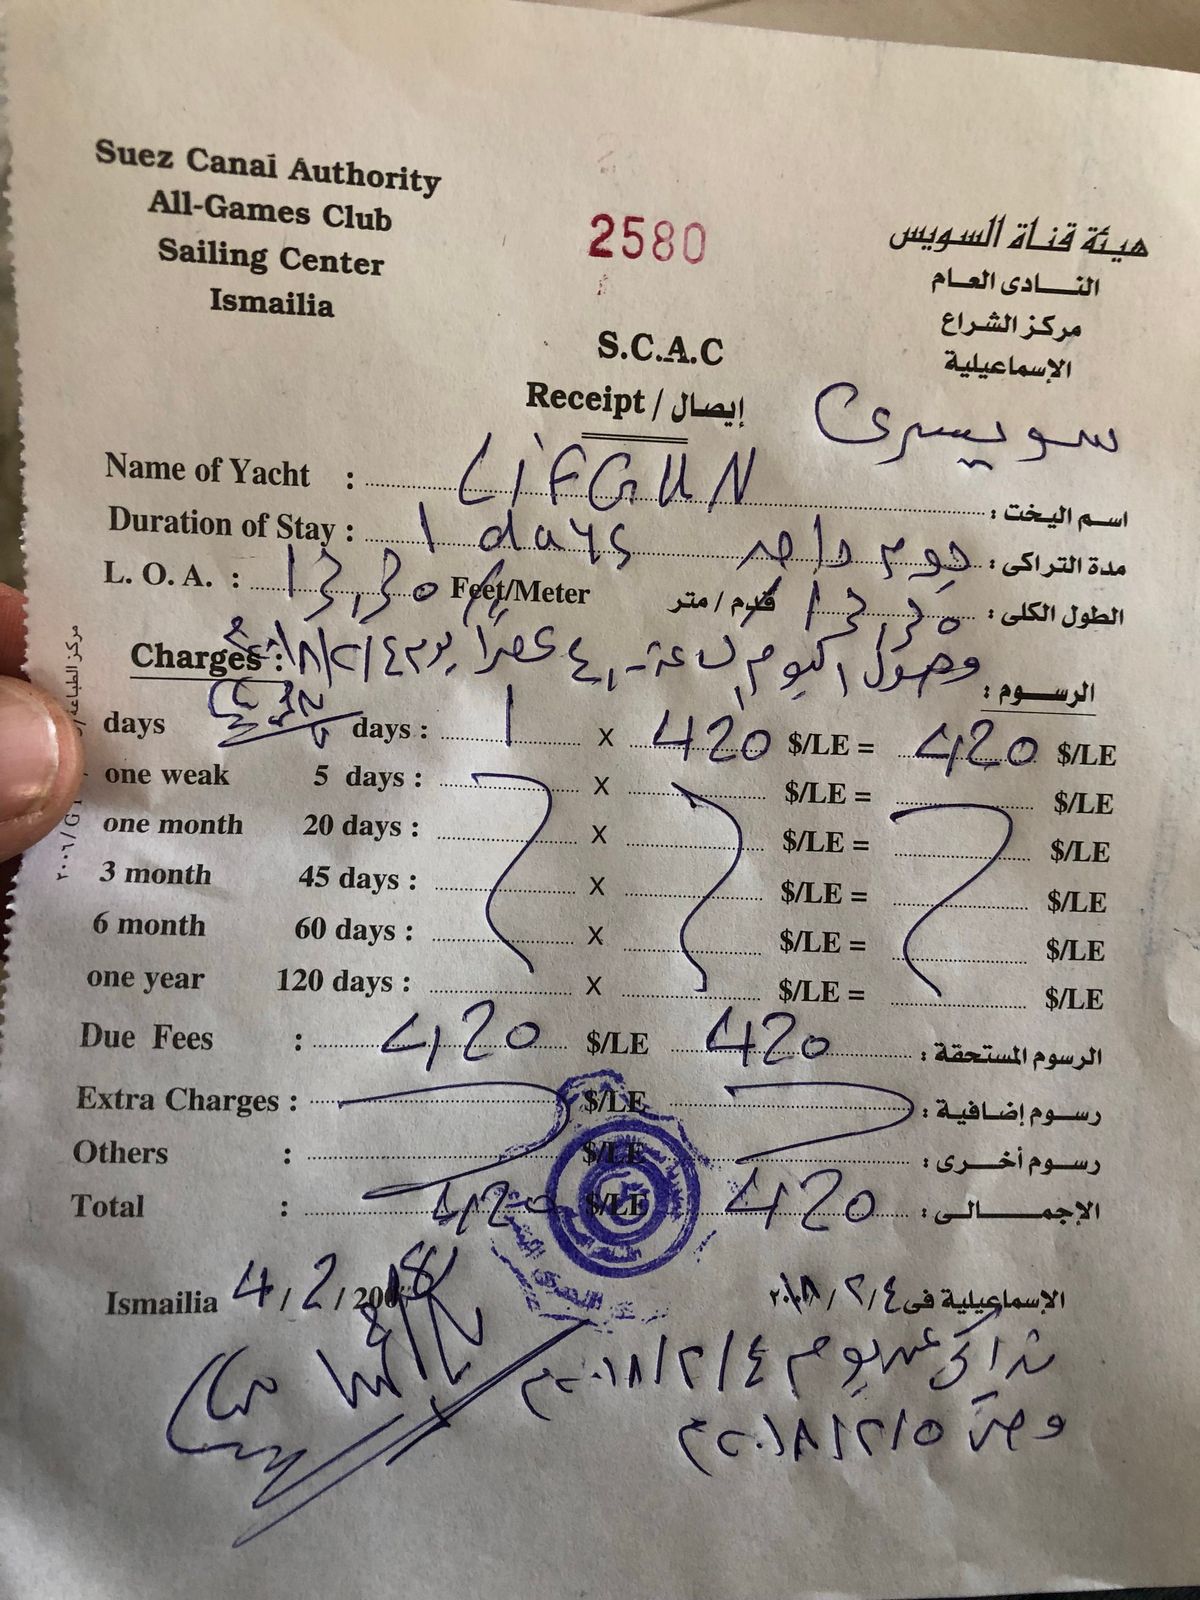 Suez Canal Authority
All-Games Club
Sailing Center
Ismailia
2580
هيئة قناة السويس
النادى العام
مركز الشراع
الإسماعيلية
S.C.A.C
Receipt / إيصال
سويسرى
Name of Yacht : LiFGUN اسم اليخت :
Duration of Stay : 1 days يوم واحد مدة التراكى :
L. O. A. : 13,30 Feet/Meter قدم / متر 13,30 الطول الكلى :
وصول اليوم الساعة ٤ عصراً يوم ٢٠١٨/٢/٤م
Charges : الرسوم :
days days : 1 x 420 $/LE = 420 $/LE
one weak 5 days : x $/LE = $/LE
one month 20 days : x $/LE = $/LE
3 month 45 days : x $/LE = $/LE
6 month 60 days : x $/LE = $/LE
one year 120 days : x $/LE = $/LE
Due Fees : 420 $/LE 420 الرسوم المستحقة :
Extra Charges : $/LE رسوم إضافية :
Others : $/LE رسوم أخرى :
Total : 420 $/LE 420 الإجمالى :
Ismailia 4/2/2018 الإسماعيلية فى ٤/٢/٢٠١٨
تراكى عن يوم ٢٠١٨/٢/٤م
وحتى ٢٠١٨/٢/٥م